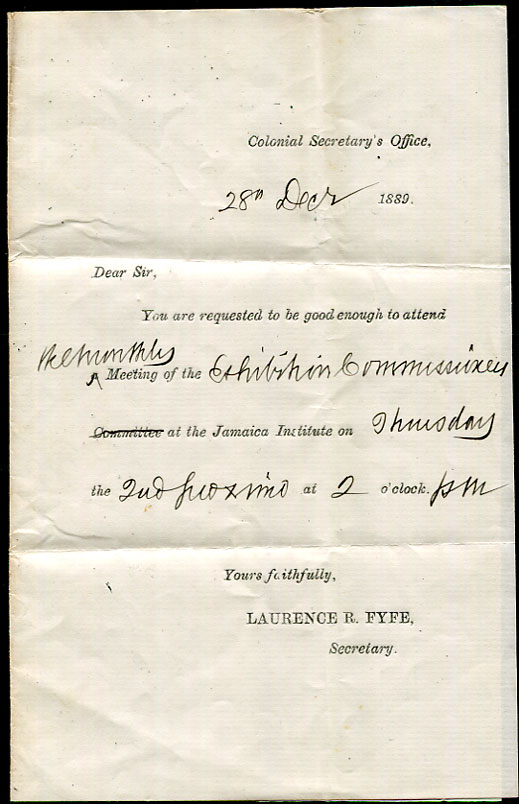 Colonial Secretary's Office,
28th Decr 1889.
Dear Sir,
You are requested to be good enough to attend
the monthly
A Meeting of the Exhibition Commissioners
Committee at the Jamaica Institute on Thursday
the 2nd proximo at 2 o'clock. pm
Yours faithfully,
LAURENCE R. FYFE,
Secretary.